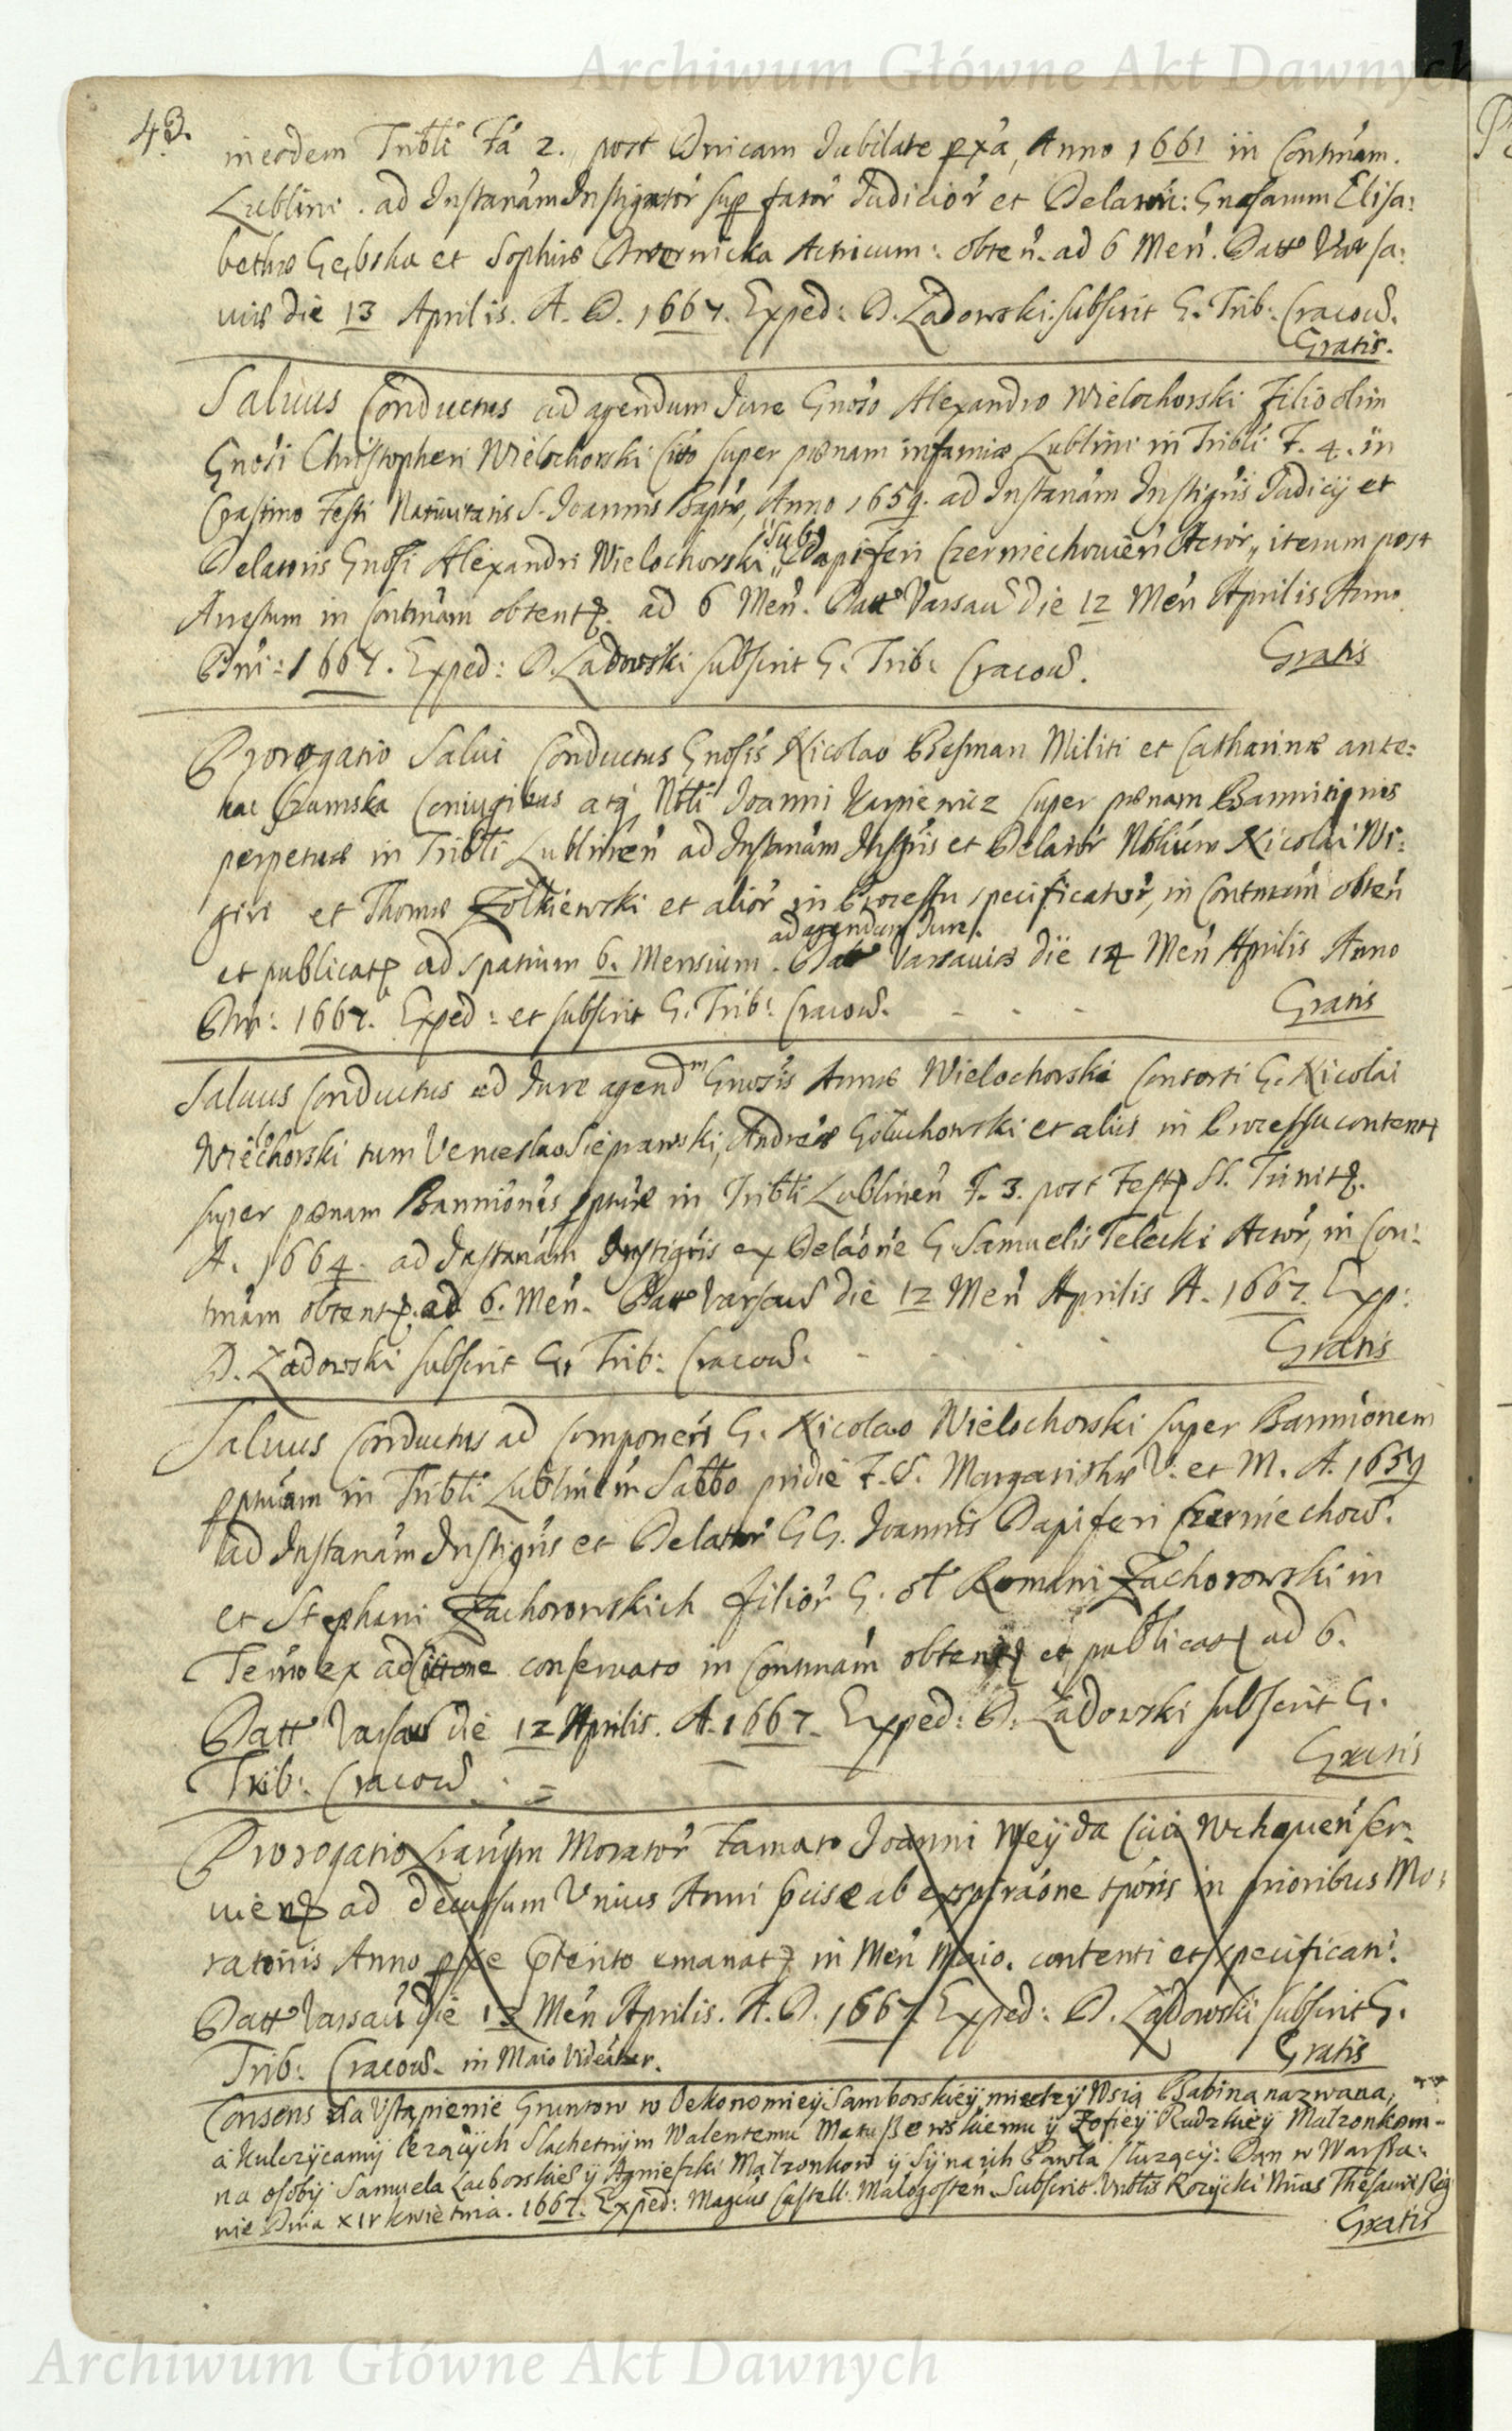 Archiwum Główne Akt Dawnych
43.
in eodem Tribli Fa 2. post Dnicam Jubilate pxa, Anno 1661 in Contnam.
Lublini. ad Instanam Instigator sup fator Judicior et Delator: Gnosarum Elisa:
bethæ Gębska et Sophiæ Dwernicka Actricum: obten. ad 6 Men. Datt Varsa:
viæ die 13 Aprilis. A. D. 1667. Exped: D. Ładowski. subscrit G. Trib: Cracow.
Gratis.
Salvus Conductus ad agendum Jure Gnoso Alexandro Wielochorski Filio olim
Gnosi Christopheri Wielochorski sito super pœnam infamiæ Lublini in Tribli F. 4. in
Crastino Festi Nativitatis S. Joannis Baptæ, Anno 1659. ad Instanam Instigris Judicij et
Delatoris Gnosi Alexandri Wielochorski Sub Dapiferi Czerniechovien Actor, iterum post
Arestum in Contnam obtent. ad 6 Men. Datt Varsav die 12 Men Aprilis Anno
Dni: 1667. Exped: D. Ładowski subscrit G. Trib: Cracow.
Gratis
Prorogatio Salvi Conductus Gnosis Nicolao Besman Militi et Catharinæ ante:
hac Czamska Coniugibus atq Nbli Joanni Karpiewicz super pœnam Bannitionis
perpetuæ in Tribli Lublinen ad Instanam Instigris et Delator Nblium Nicolai Ni:
giri et Thomæ Zołkiewski et alior in Processu specificator, in Contnam obten
ad agendum Jure.
et publicat ad spatium 6. Mensium. Datt Varsaviæ die 14 Men Aprilis Anno
Dni: 1667. Exped: et subscrit G. Trib: Cracow.
Gratis
Salvus Conductus ad Jure agendm Gnosis Annæ Wielochorski Consorti G. Nicolai
Wielochorski tum Venceslao Sieprawski, Andreæ Gołuchowski et aliis in Processu content
super pœnam Bannionis pptuæ in Tribli Lublinen F. 3. post Fest SS. Trinit.
A. 1664. ad Instanam Instigris ex Delaone G. Samuelis Telecki Actor, in Con:
tnam obtent. ad 6. Men. Datt Varsav die 12 Men Aprilis A. 1667. Exp:
D. Ładowski subscrit G. Trib: Cracow.
Gratis
Salvus Conductus ad componen G. Nicolao Wielochorski super Bannionem
pptuam in Tribli Lublinen Sabbo pridie F. S. Margarithæ V. et M. A. 1659
ad Instanam Instigris et Delator GG. Joannis Dapiferi Czerniechow.
et Stephani Zachorowskich filior G. ol Romani Zachorowski in
Termo ex adcitone conservato in Contnam obtent et publicat ad 6.
Datt Varsav die 12 Aprilis. A. 1667. Exped: D. Ładowski subscrit G.
Gratis
Trib: Cracow
Prorogatio Lrarum Morator Famato Joanni Weyda Civi Wchoven ser-
vient ad decursum Unius Anni pcise ab exspiraone tporis in prioribus Mo:
ratoriis Anno pxe pterito emanat in Men Maio. contenti et specificati.
Datt Varsav die 13 Men Aprilis. A. D. 1667. Exped: D. Ładowski subscrit G.
Trib: Cracow. in Maio videatur.
Gratis
Consens na Ustąpienie Gruntow w Oekonomiey Samborskiey miedzy Wsią Babina nazwaną,
a Kulczycamy lezących Slachetnym Walentemu Matuszewskiemu y Zofiey Rudzkiey Małzonkom
na osoby Samuela Laborskieo y Agnieszki Małzonkow y Syna ich Pawła słuzący: Dan w Warsza:
wie Dnia XIV kwietnia. 1667. Exped: Magcus Castell. Małogosten. Subscrit. Vrblis Rozycki Nrius Thesauri Reg
Gratis
Archiwum Główne Akt Dawnych